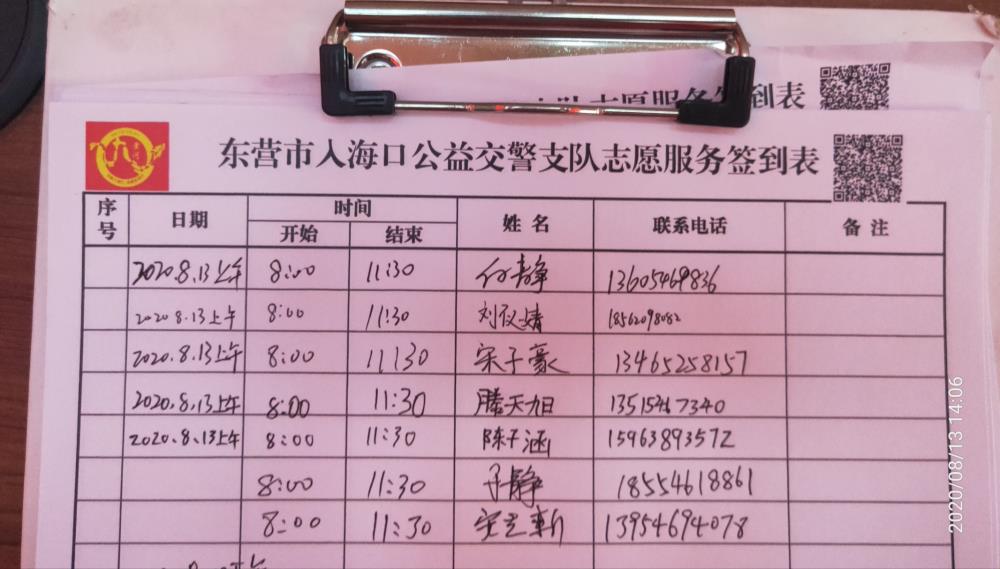 志愿服务签到表
东营市入海口公益交警支队志愿服务签到表
序号 日期 时间 姓名 联系电话 备注
开始 结束
2020.8.13上午 8:00 11:30 付静 13605469836
2020 8.13上午 8:00 11:30 刘仪婧 18562098082
2020.8.13上午 8:00 11:30 宋子豪 13465258157
2020.8.13上午 8:00 11:30 滕天旭 13515467340
2020.8.13上午 8:00 11:30 陈子涵 15963893572
8:00 11:30 静 18554618861
8:00 11:30 13954694078
2020/08/13 14:06